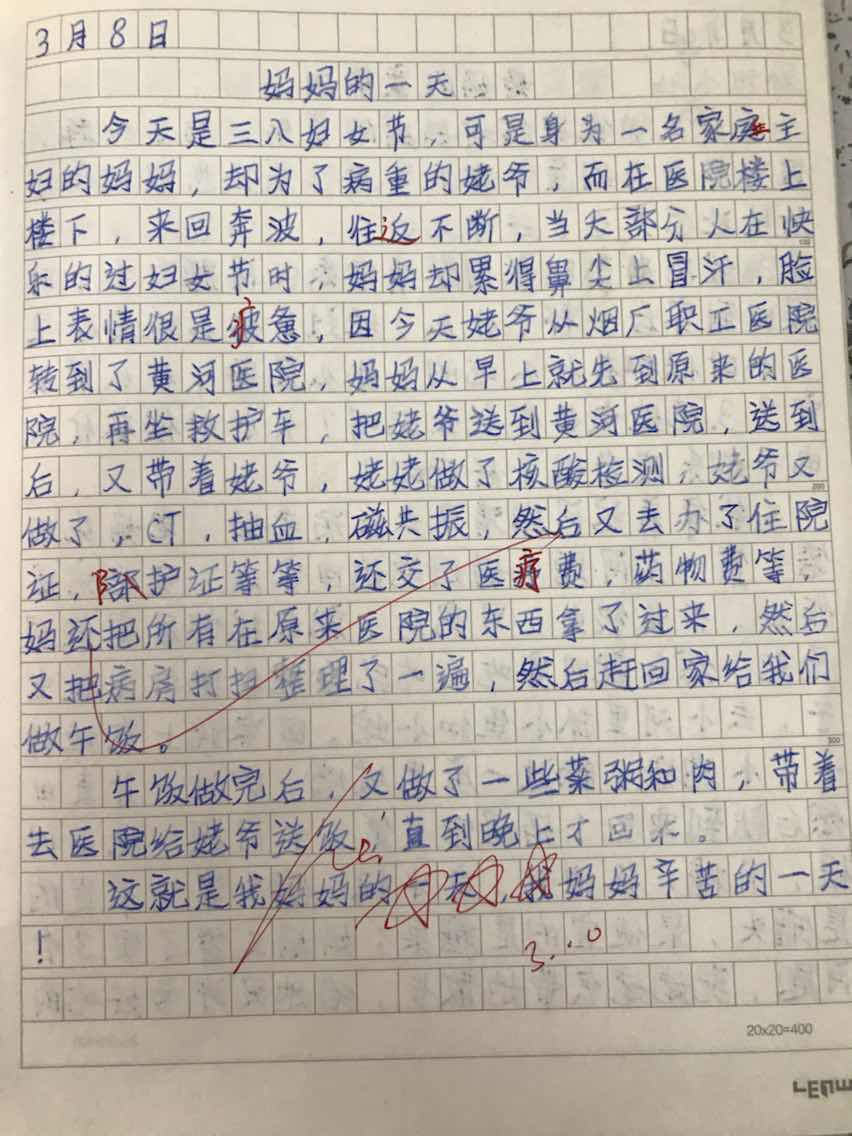 3月8日
妈妈的一天
今天是三八妇女节，可是身为一名家庭主
妇的妈妈，却为了病重的姥爷，而在医院楼上
楼下，来回奔波，往返不断，当大部分人在快
乐的过妇女节时，妈妈却累得鼻尖上冒汗，脸
上表情很是疲惫，因今天姥爷从烟厂职工医院
转到了黄河医院，妈妈从早上就先到原来的医
院，再坐救护车，把姥爷送到黄河医院，送到
后，又带着姥爷，姥姥做了核酸检测，姥爷又
做了，CT，抽血，磁共振，然后又去办了住院
证，陪护证等等，还交了医疗费，药物费等，
妈还把所有在原来医院的东西拿了过来，然后
又把病房打扫整理了一遍，然后赶回家给我们
做午饭。
午饭做完后，又做了一些菜粥和肉，带着
去医院给姥爷送饭，直到晚上才回来。
这就是我妈妈的一天，我妈妈辛苦的一天
！
20×20=400